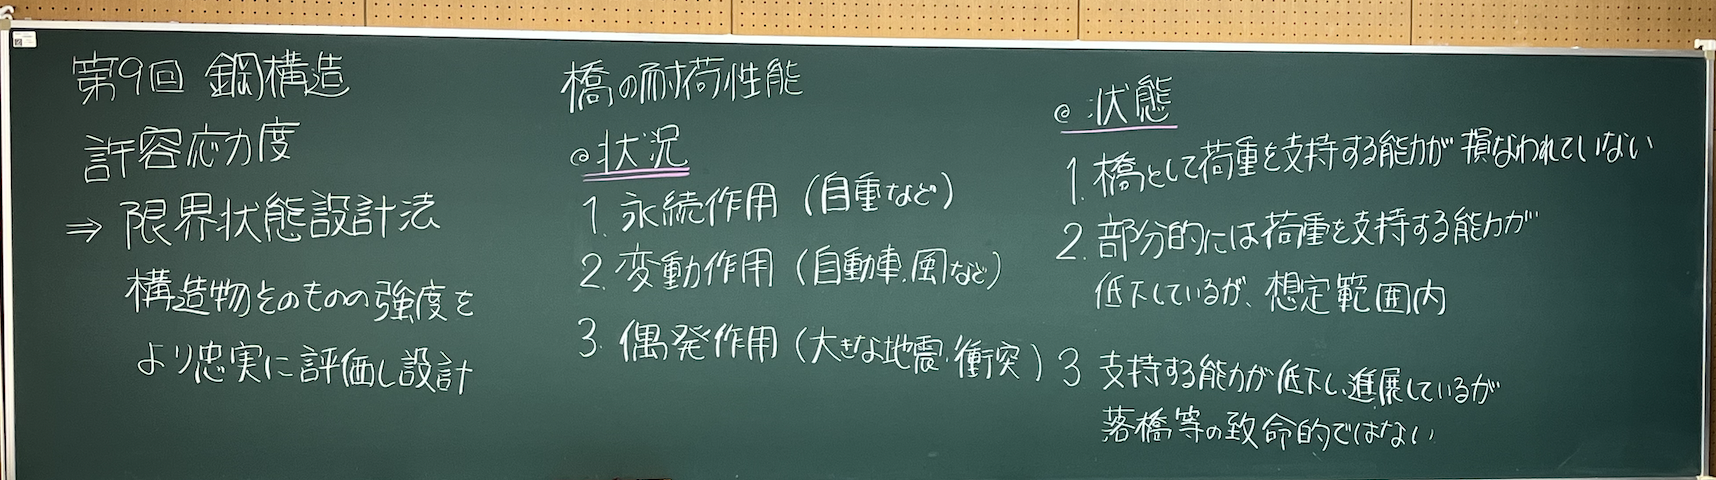 第9回 鋼構造
許容応力度
⇒ 限界状態設計法
構造物そのものの強度を
より忠実に評価し設計
橋の耐荷性能
◎状況
1. 永続作用（自重など）
2. 変動作用（自動車、風など）
3. 偶発作用（大きな地震、衝突）
◎状態
1. 橋として荷重を支持する能力が損なわれていない
2. 部分的には荷重を支持する能力が
低下しているが、想定範囲内
3 支持する能力が低下し、進展しているが
落橋等の致命的ではない